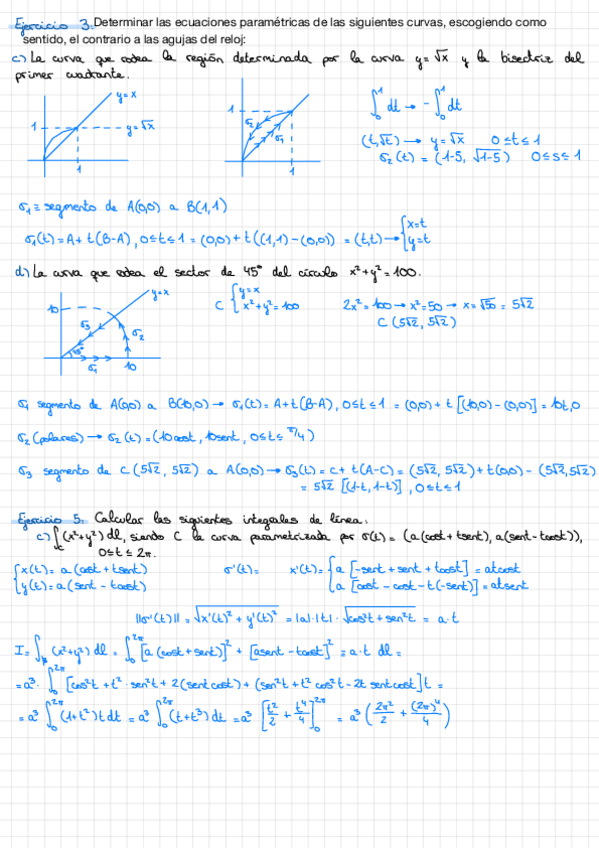 Ejercicio 3. Determinar las ecuaciones paramétricas de las siguientes curvas, escogiendo como
sentido, el contrario a las agujas del reloj:
c) La curva que rodea la región determinada por la curva y = √x y la bisectriz del
primer cuadrante.
y=x
1
y=√x
1
1
σ₂
σ₁
1
∫₀¹ dt → -∫₀¹ dt
(t,√t) → y=√x 0≤t≤1
σ₂(t) = (1-s, √1-s) 0≤s≤1
σ₁ ≡ segmento de A(0,0) a B(1,1)
σ₁(t) = A + t(B-A), 0≤t≤1 = (0,0) + t((1,1) - (0,0)) = (t,t) → { x=t
y=t
d) La curva que rodea el sector de 45° del círculo x²+y²=100.
y=x
10
σ₃
σ₂
45°
σ₁
10
C { y=x
x²+y²=100
2x²=100 → x²=50 → x=√50 = 5√2
C (5√2, 5√2)
σ₁ segmento de A(0,0) a B(10,0) → σ₁(t) = A+t(B-A), 0≤t≤1 = (0,0) + t [(10,0) - (0,0)] = 10t,0
σ₂ (polares) → σ₂(t) = (10cost, 10sent, 0≤t≤ π/4)
σ₃ segmento de C (5√2, 5√2) a A(0,0) → σ₃(t) = C + t(A-C) = (5√2, 5√2) + t(0,0) - (5√2, 5√2)
= 5√2 [(1-t, 1-t)], 0≤t≤1
Ejercicio 5. Calcular las siguientes integrales de línea.
c) ∫c (x²+y²) dl, siendo C la curva parametrizada por σ(t) = (a(cost + tsent), a(sent - tcost)),
0≤t≤2π.
{ x(t) = a(cost + tsent)
y(t) = a(sent - tcost)
σ'(t) = x'(t) = { a [-sent + sent + tcost] = atcost
a [cost - cost - t(-sent)] = atsent
||σ'(t)|| = √x'(t)² + y'(t)² = |a|·|t|·√cos²t + sen²t = a·t
I = ∫ (x²+y²) dl = ∫₀²π [a (cost + sent)]² + [asent - tcost]² = a·t dl =
= a³ · ∫₀²π [cos²t + t²·sen²t + 2(sentcost) + (sen²t + t² cos²t - 2t sentcost] t =
= a³ ∫₀²π (1+t²) t dt = a³ ∫₀²π (t+t³) dt = a³ [t²/2 + t⁴/4]₀²π = a³ (2π²/2 + (2π)⁴/4)